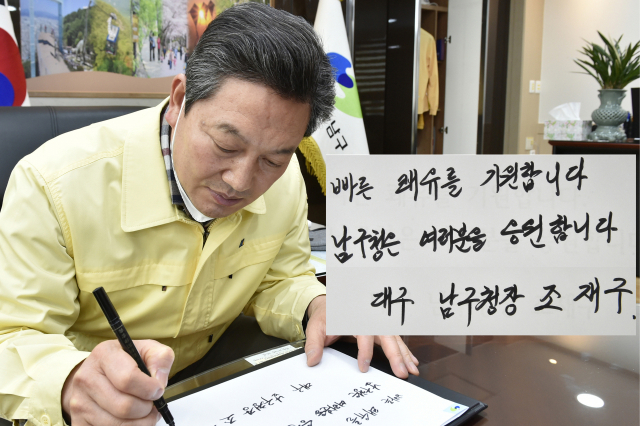 빠른 쾌유를 기원합니다
남구청은 여러분을 응원합니다
대구 남구청장 조재구.
남구